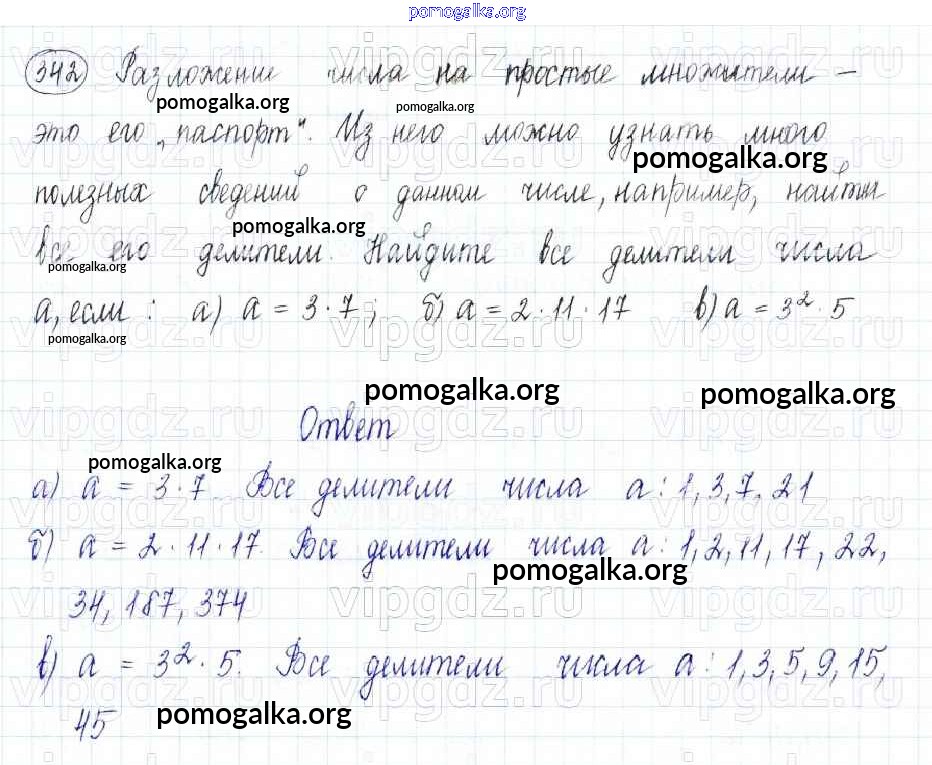 pomogalka.org
342 Разложение числа на простые множители –
pomogalka.org pomogalka.org
это его „паспорт“. Из него можно узнать много
pomogalka.org
полезных сведений о данном числе, например, найти
pomogalka.org
все его делители. Найдите все делители числа
pomogalka.org
а, если : а) a = 3 · 7 ; б) a = 2 · 11 · 17 в) a = 3² · 5
pomogalka.org
pomogalka.org pomogalka.org
Ответ
pomogalka.org
а) a = 3 · 7 Все делители числа a : 1, 3, 7, 21
б) a = 2 · 11 · 17. Все делители числа a : 1, 2, 11, 17, 22,
pomogalka.org
34, 187, 374
в) a = 3² · 5. Все делители числа a : 1, 3, 5, 9, 15,
45
pomogalka.org
vipgdz.ru